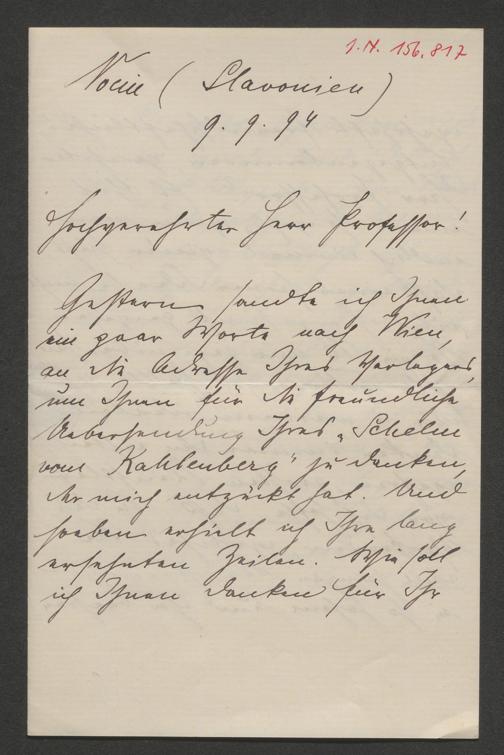 I.N. 156.817
Nocin (Slavonien)
9. 9. 94
Hochverehrter Herr Professor!
Gestern sandte ich Ihnen
ein paar Worte nach Wien,
an die Adresse Ihres Verlegers,
um Ihnen für die freundliche
Uebersendung Ihres „Schelm
vom Kahlenberg" zu danken,
der mich entzückt hat. Und
soeben erhielt ich Ihre lang
ersehnten Zeilen. Wie soll
ich Ihnen danken für Ihr